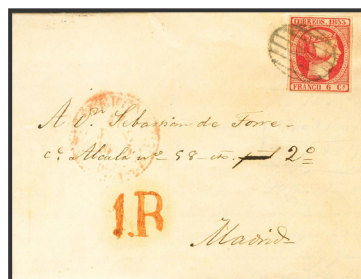 CORREOS. 1853
FRANCO 6 Cs
A Dn Sebastian de Torre-
c.e Alcalá nº 58 cto. 2º
1.R
Madrid